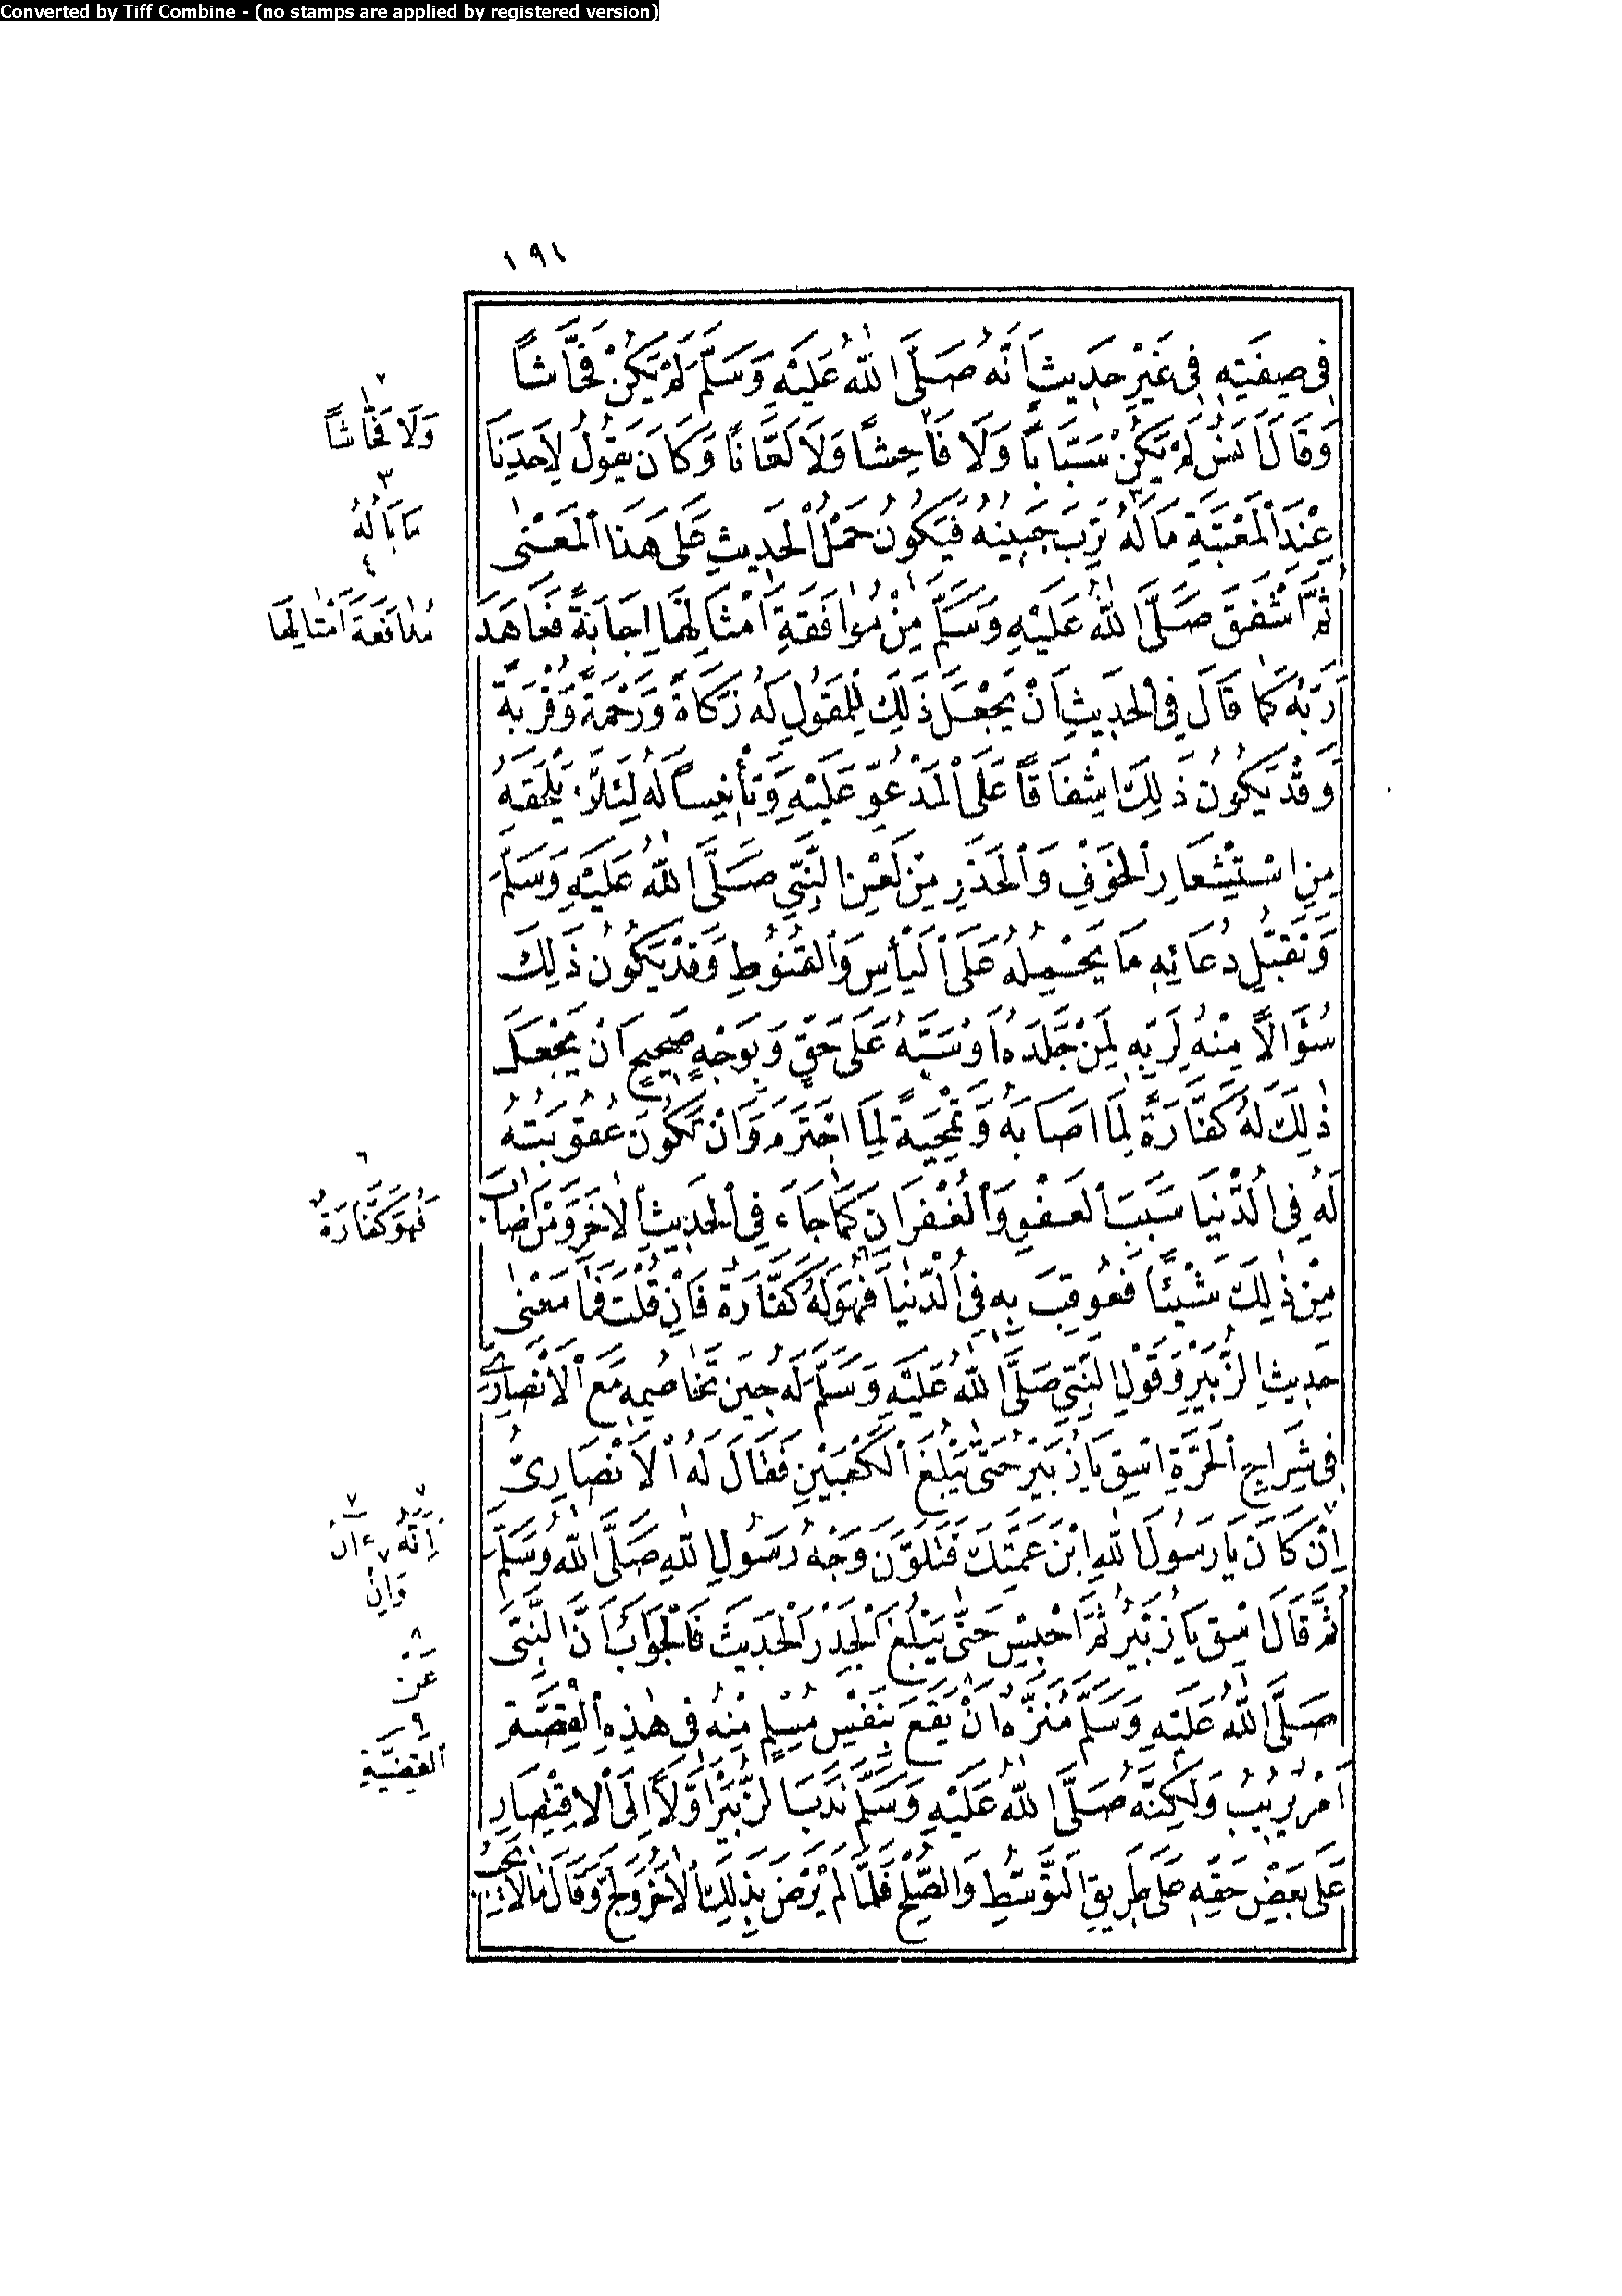 Converted by Tiff Combine - (no stamps are applied by registered version)
١٩١
فِى صِفَتِهِ فِى غَيْرِ حَدِيثٍ اَنَّهُ صَلَّى اللهُ عَلَيْهِ وَسَلَّمَ لَمْ يَكُنْ فَحَّاشًا
وَقَالَ اَنَسٌ لَمْ يَكُنْ سَبَّابًا وَلَا فَاحِشًا وَلَا لَعَّانًا وَكَانَ يَقُولُ لِاَحَدِنَا
عِنْدَ الْمَعْتَبَةِ مَالَهُ تَرِبَ جَبِينُهُ فَيَكُونُ حَمْلُ الْحَدِيثِ عَلَى هَذَا الْمَعْنٰى
ثُمَّ اَشْفَقَ صَلَّى اللهُ عَلَيْهِ وَسَلَّمَ مِنْ مُوَافَقَةِ اَمْثَالِهَا اِجَابَةً فَعَاهَدَ
رَبَّهُ كَمَا قَالَ فِى الْحَدِيثِ اَنْ يَجْعَلَ ذَلِكَ لِلْمَقُولِ لَهُ زَكَاةً وَرَحْمَةً وَقُرْبَةً
وَقَدْ يَكُونُ ذَلِكَ اِشْفَاقًا عَلَى الْمَدْعُوِّ عَلَيْهِ وَتَأْنِيسًا لَهُ لِئَلَّا يَلْحَقَهُ
مِنِ اسْتِشْعَارِ الْخَوْفِ وَالْحَذَرِ مِنْ لَعْنِ النَّبِيِّ صَلَّى اللهُ عَلَيْهِ وَسَلَّمَ
وَتَقَبُّلِ دُعَائِهِ مَا يَحْمِلُهُ عَلَى الْيَأْسِ وَالْقُنُوطِ وَقَدْ يَكُونُ ذَلِكَ
سُؤَالًا مِنْهُ لِرَبِّهِ لِمَنْ جَلَدَهُ اَوْ سَبَّهُ عَلَى حَقٍّ وَبِوَجْهٍ صَحِيحٍ اَنْ يَجْعَلَ
ذٰلِكَ لَهُ كَفَّارَةً لِمَا اَصَابَهُ وَتَمْحِيَةً لِمَا اجْتَرَمَ وَاَنْ تَكُونَ عُقُوبَتُهُ
لَهُ فِى الدُّنْيَا سَبَبَ الْعَفْوِ وَالْغُفْرَانِ كَمَا جَاءَ فِى الْحَدِيثِ الْاٰخَرِ وَمَنْ اَصَابَ
مِنْ ذٰلِكَ شَيْئًا فَعُوقِبَ بِهِ فِى الدُّنْيَا فَهُوَ لَهُ كَفَّارَةٌ فَاِنْ قُلْتَ فَمَا مَعْنٰى
حَدِيثِ الزُّبَيْرِ وَقَوْلِ النَّبِيِّ صَلَّى اللهُ عَلَيْهِ وَسَلَّمَ لَهُ حِينَ تَخَاصُمِهِ مَعَ الْاَنْصَارِيِّ
فِى شِرَاجِ الْحَرَّةِ اسْقِ يَا زُبَيْرُ حَتَّى يَبْلُغَ الْكَعْبَيْنِ فَقَالَ لَهُ الْاَنْصَارِيُّ
اِنْ كَانَ يَا رَسُولَ اللهِ ابْنَ عَمَّتِكَ فَتَلَوَّنَ وَجْهُ رَسُولِ اللهِ صَلَّى اللهُ وَسَلَّمَ
ثُمَّ قَالَ اسْقِ يَا زُبَيْرُ ثُمَّ احْبِسْ حَتَّى يَبْلُغَ الْجَدْرَ الْحَدِيثَ فَالْجَوَابُ اَنَّ النَّبِيَّ
صَلَّى اللهُ عَلَيْهِ وَسَلَّمَ مُنَزَّهٌ اَنْ يَقَعَ بِنَفْسِ مُسْلِمٍ مِنْهُ فِى هٰذِهِ الْقِصَّةِ
اَمْرٌ يُرِيبُ وَلَكِنَّهُ صَلَّى اللهُ عَلَيْهِ وَسَلَّمَ نَدَبَ الزُّبَيْرَ اَوَّلًا اِلَى الْاِقْتِصَارِ
عَلَى بَعْضِ حَقِّهِ عَلَى طَرِيقِ التَّوَسُّطِ وَالصُّلْحِ فَلَمَّا لَمْ يَرْضَ بِذَلِكَ الْاٰخَرُ وَلَجَّ وَقَالَ مَا لَا يَجِبُ
٢
وَلَا فَحَّاشًا
٣
مَا بَالُهُ
٤
اَمْثَالِهَا
٦
فَهُوَ كَفَّارَةٌ
٧ ٧
اِنَّهُ ءَانْ
٧
وَاِنْ
٨
عَنْ
٩
الْقَضِيَّةِ